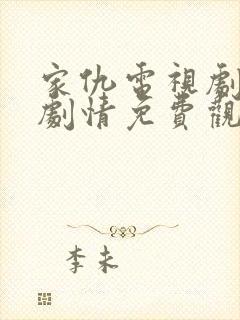 家仇電視劇
劇情免費觀
李未